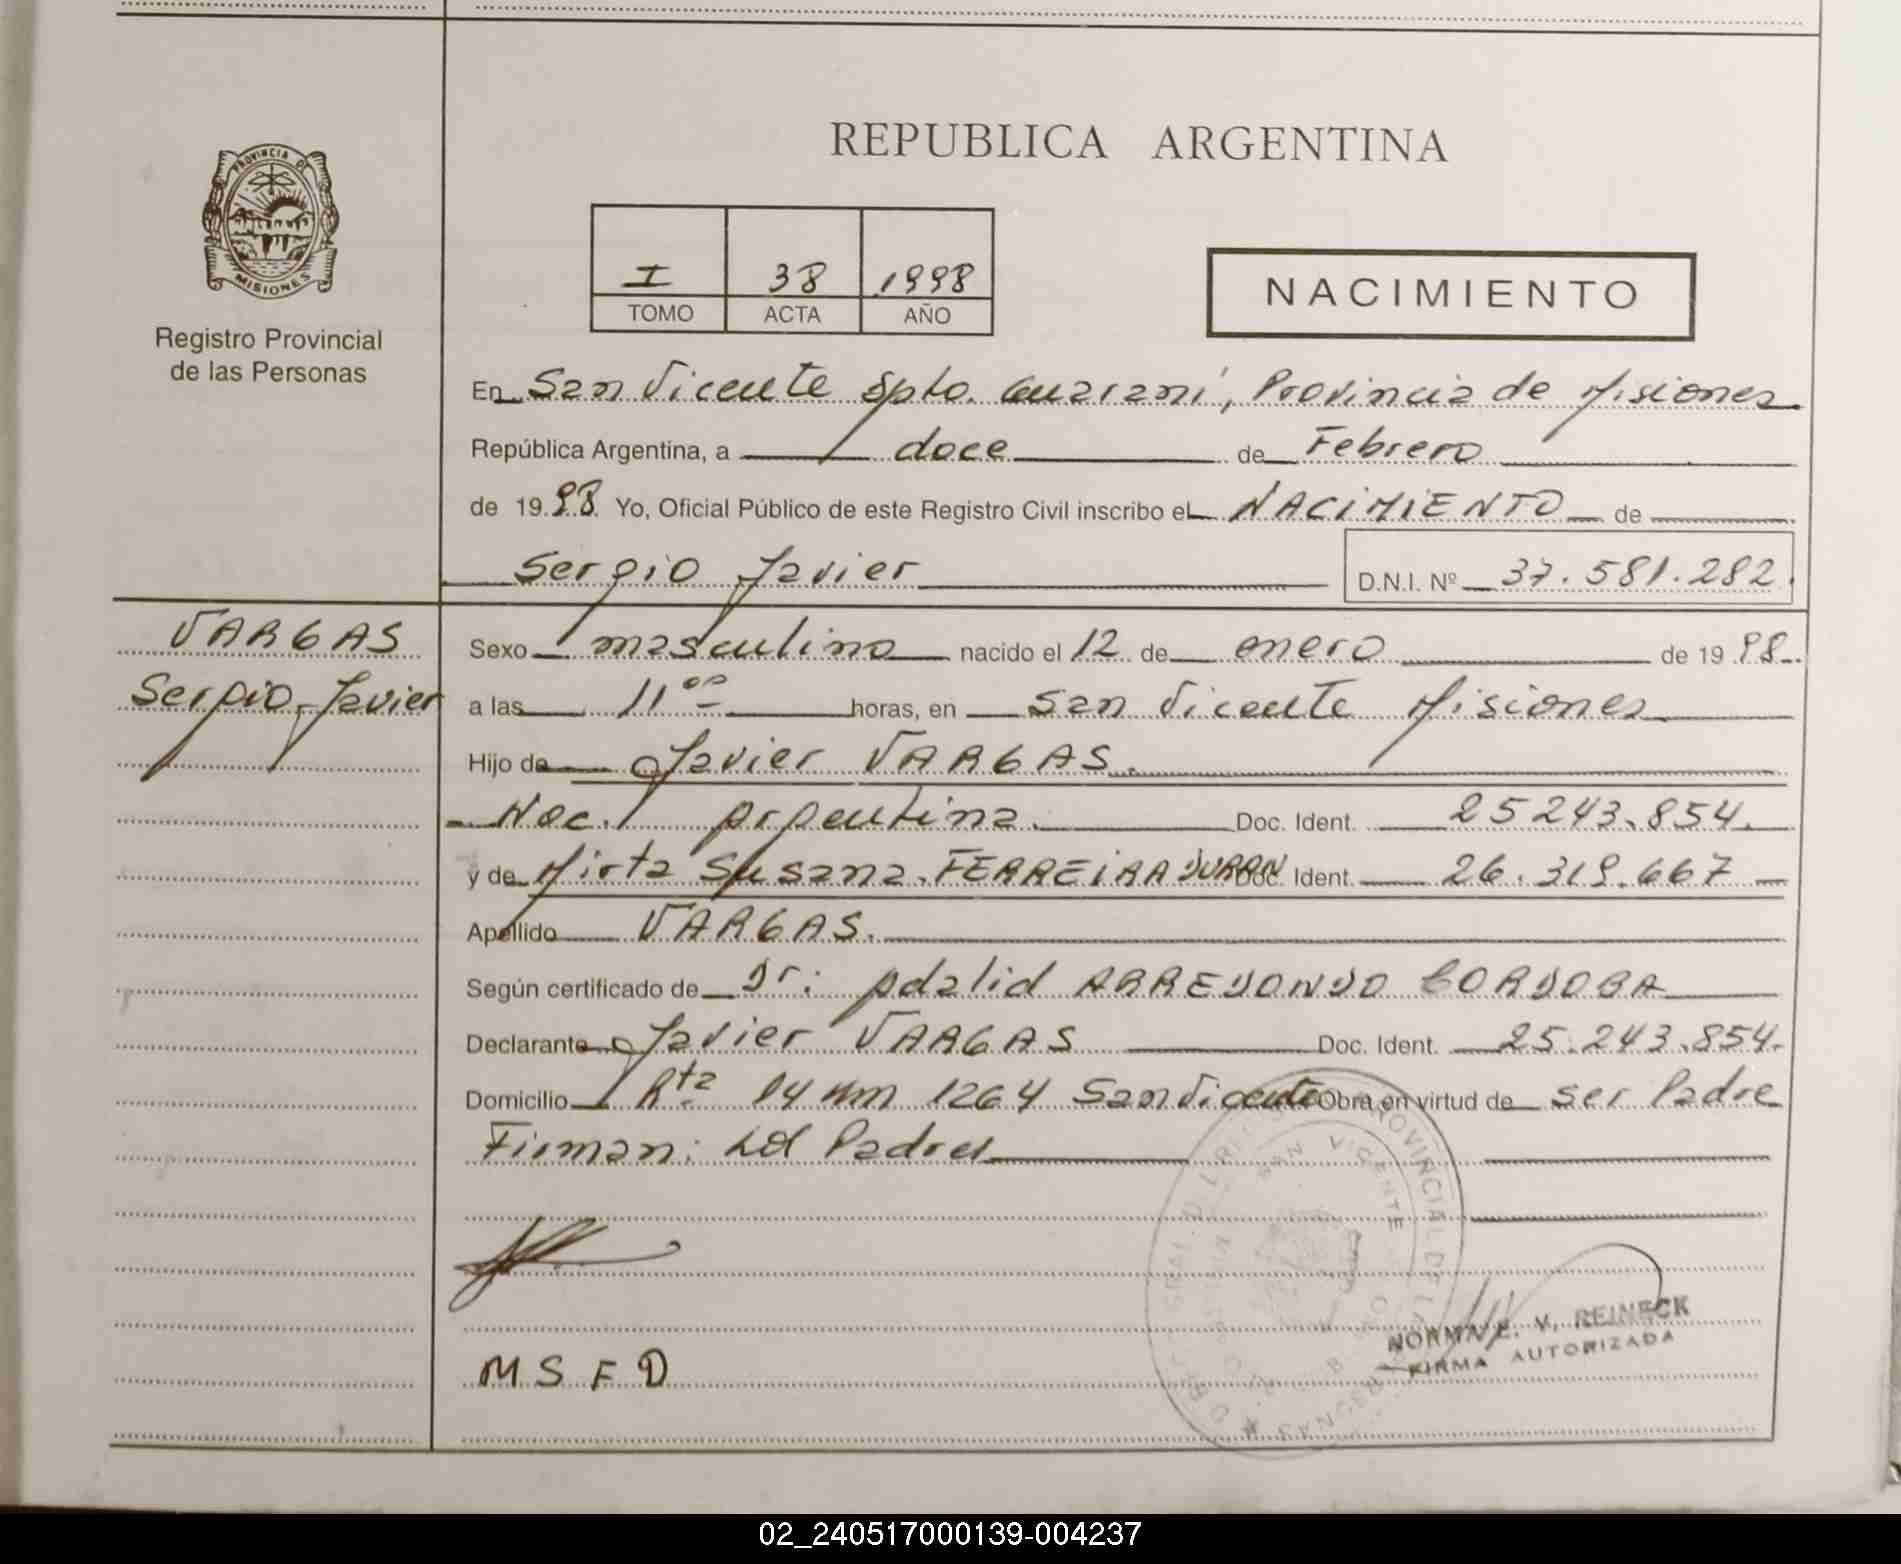 REPUBLICA ARGENTINA
PROVINCIA DE
MISIONES
Registro Provincial
de las Personas
I 38 1998
TOMO ACTA AÑO
NACIMIENTO
En San Vicente Dpto. Guaraní, Provincia de Misiones
República Argentina, a doce de Febrero
de 1998 Yo, Oficial Público de este Registro Civil inscribo el NACIMIENTO de
Sergio Javier D.N.I. Nº 37.581.282
VARGAS
Sergio Javier
Sexo masculino nacido el 12 de enero de 1998
a las 11ºº horas, en San Vicente Misiones
Hijo de Javier VARGAS.
Nac. Argentina. Doc. Ident. 25243.854.
y de Mirta Susana. FERREIRA DURAN Doc. Ident. 26.319.667
Apellido VARGAS.
Según certificado de Dr: Adalid ARREDONDO CORDOBA
Declarante Javier VARGAS Doc. Ident. 25.243.854.
Domicilio Rta 14 Km 1264 San Vicente Obra en virtud de ser Padre
Firman: Los Padres
SAN VICENTE
PROVINCIAL DE LAS
NORMA E. V. REINECK
FIRMA AUTORIZADA
M S F D
02_240517000139-004237